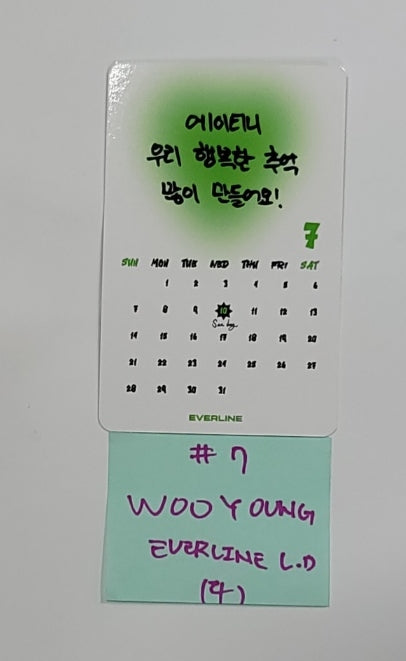 에이티니
우리 행복한 추억
많이 만들어요!
7
SUN MON TUE WED THU FRI SAT
1 2 3 4 5 6
7 8 9 10 11 12 13
14 15 16 17 18 19 20
21 22 23 24 25 26 27
28 29 30 31
EVERLINE
# 7
WOOYOUNG
EVERLINE L.D
(다)